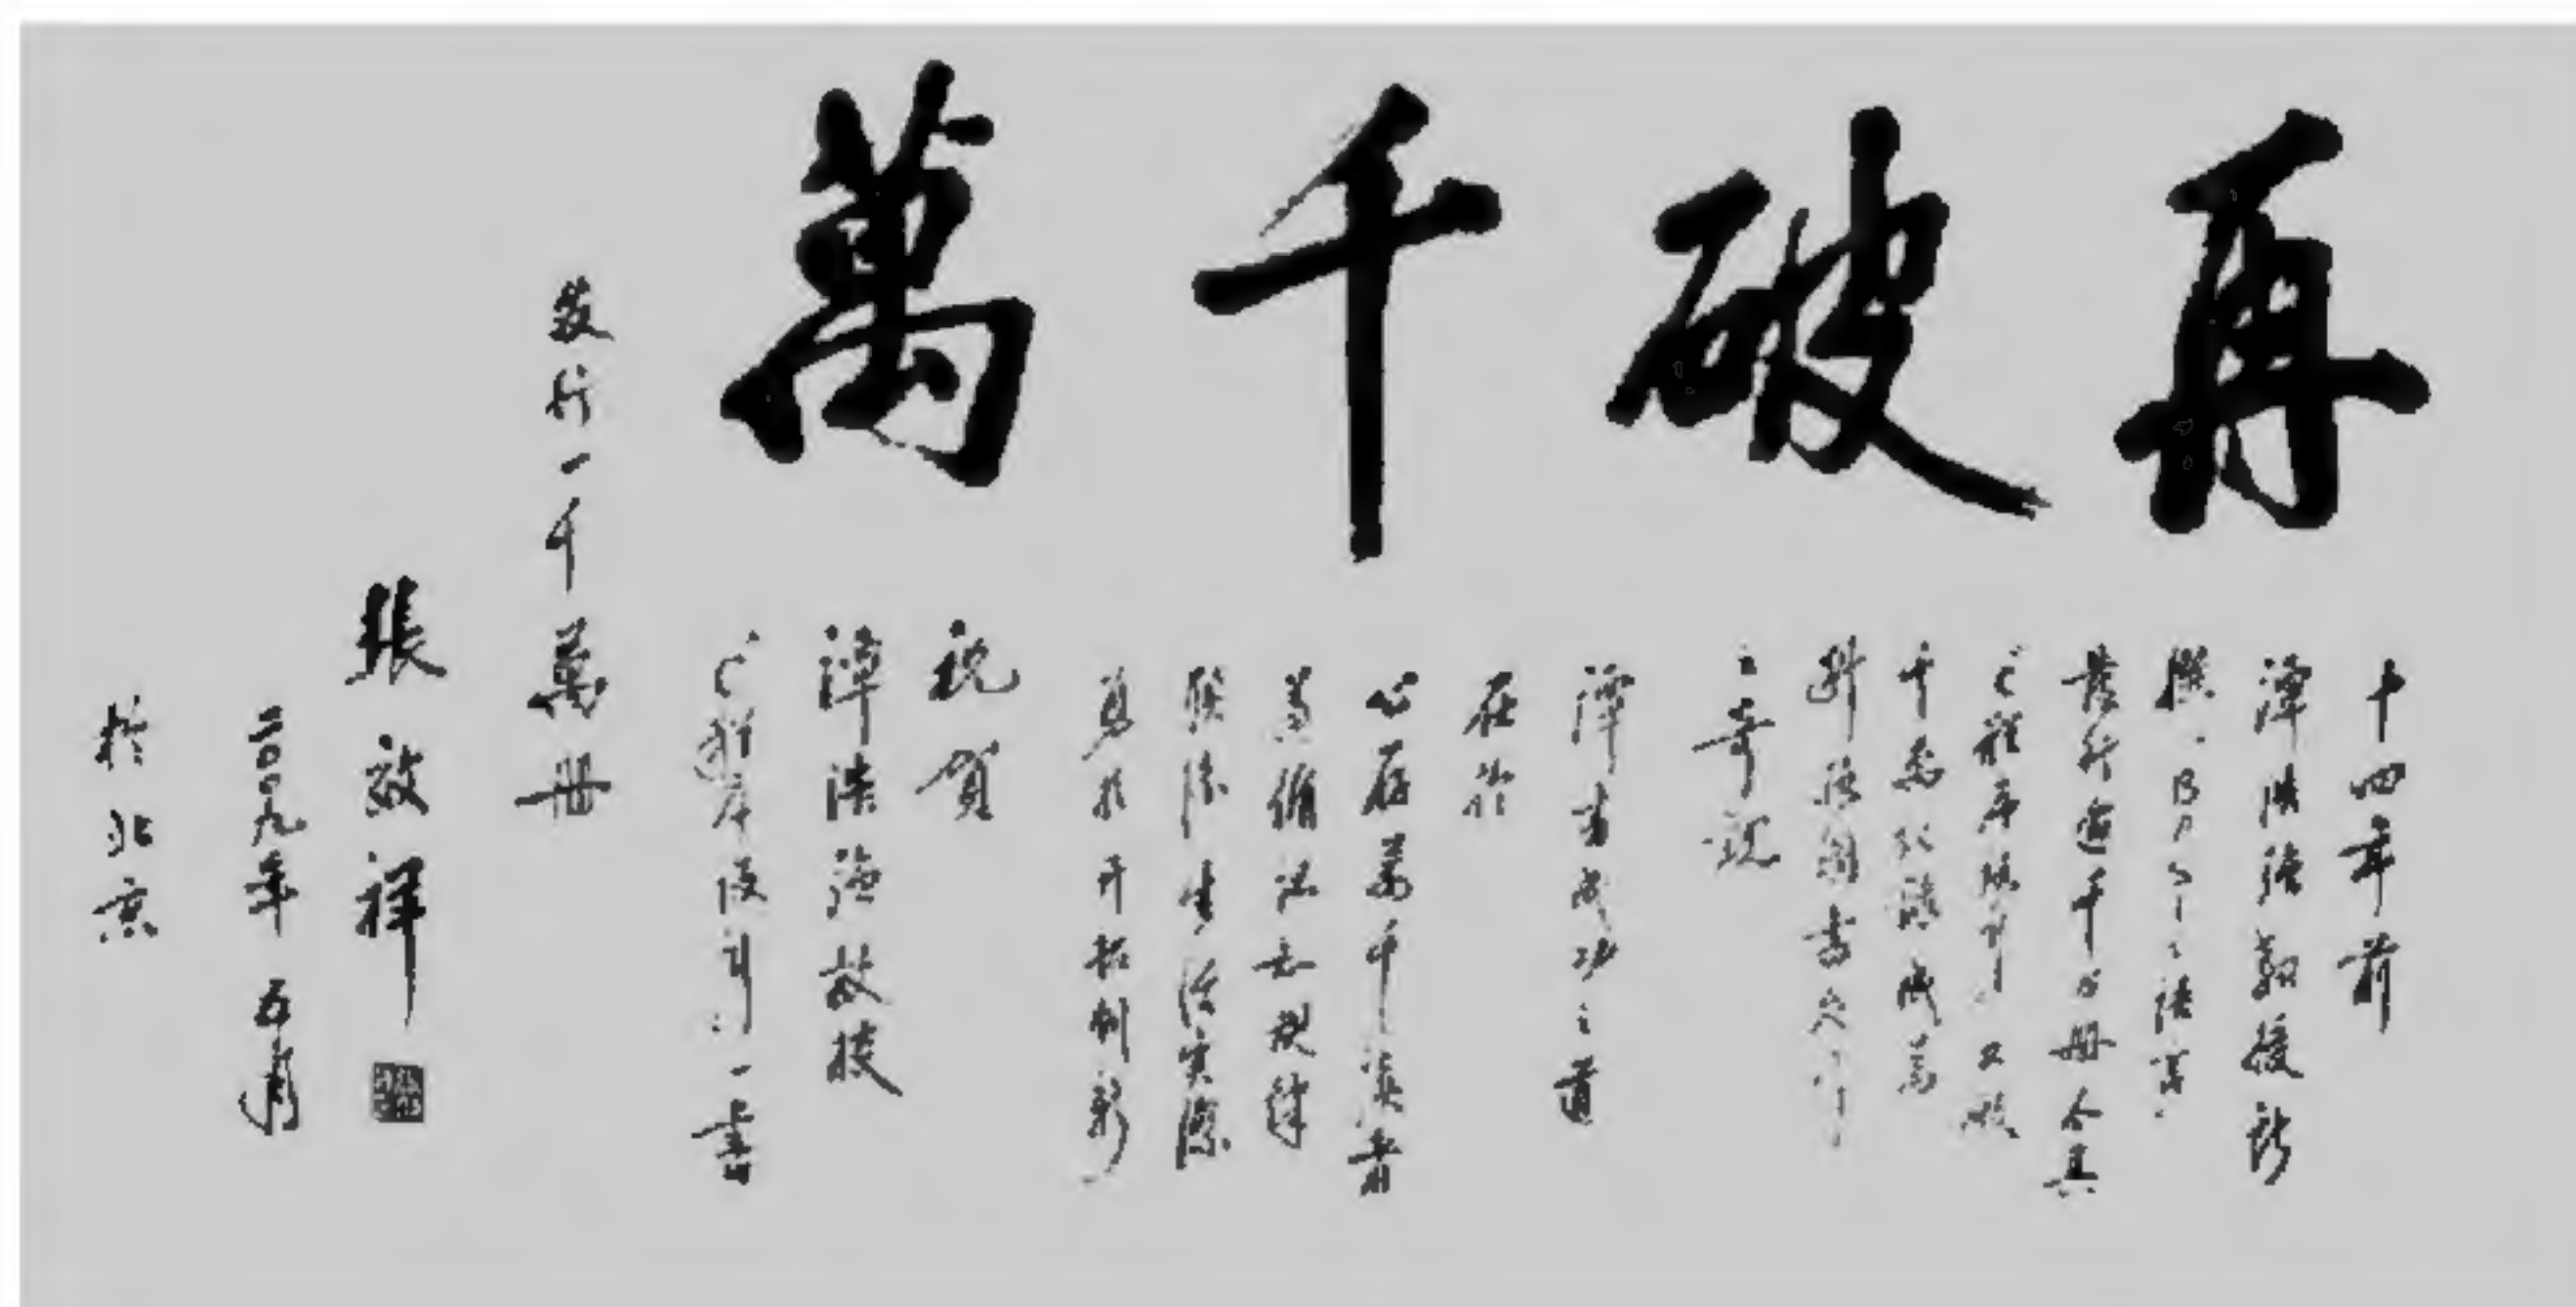 再破千萬
十四年前
譚浩强教授所
撰《BASIC語言》
發行逾千万册今其
《C程序設計》又破
千万双譚成爲
科技图書发行
之奇觀
譚書成功之道
在於
心存萬千讀者
善循认知規律
联係生活实際
勇於开拓创新
祝賀
譚浩强教授
《C程序设计》一書
发行一千萬册
張效祥
二〇〇九年五月
於北京